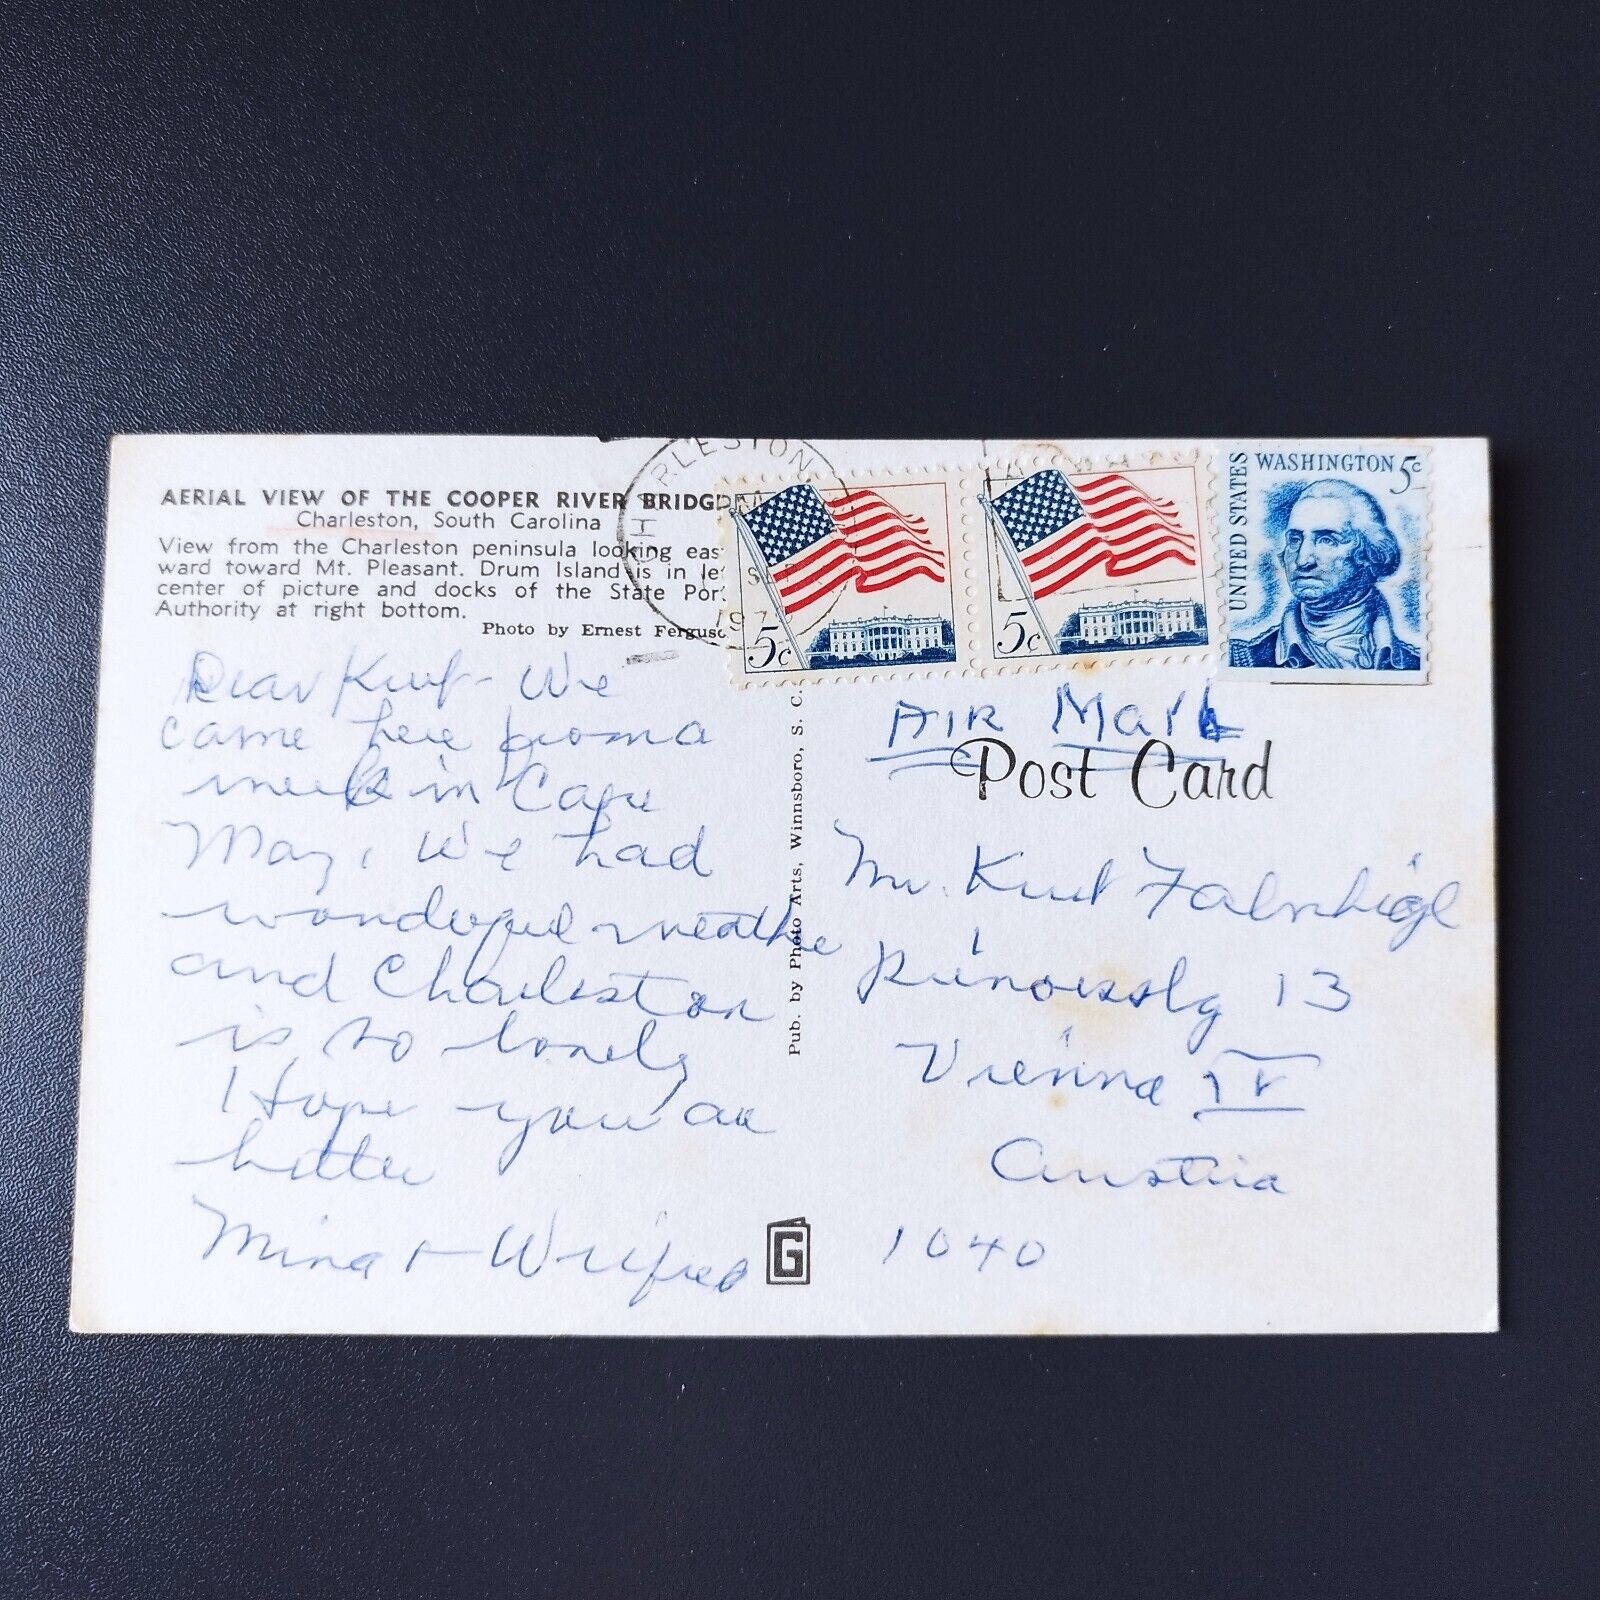 AERIAL VIEW OF THE COOPER RIVER BRIDG
Charleston, South Carolina
View from the Charleston peninsula looking eas
ward toward Mt. Pleasant. Drum Island is in le
center of picture and docks of the State Por
Authority at right bottom.
Photo by Ernest Ferguso
Dear Kurt - We
came here from a
week in Cape
May, We had
wonderful weather
and Charleston
is so lonely
I Hope you are
better
Mina + Wilfred
Pub. by Photo Arts, Winnsboro, S. C.
G
CHARLESTON
PM
SEP
197
5c
5c
UNITED STATES
WASHINGTON 5c
AIR MAIL
Post Card
Mr. Kurt
13
Vienna IV
Austria
1040